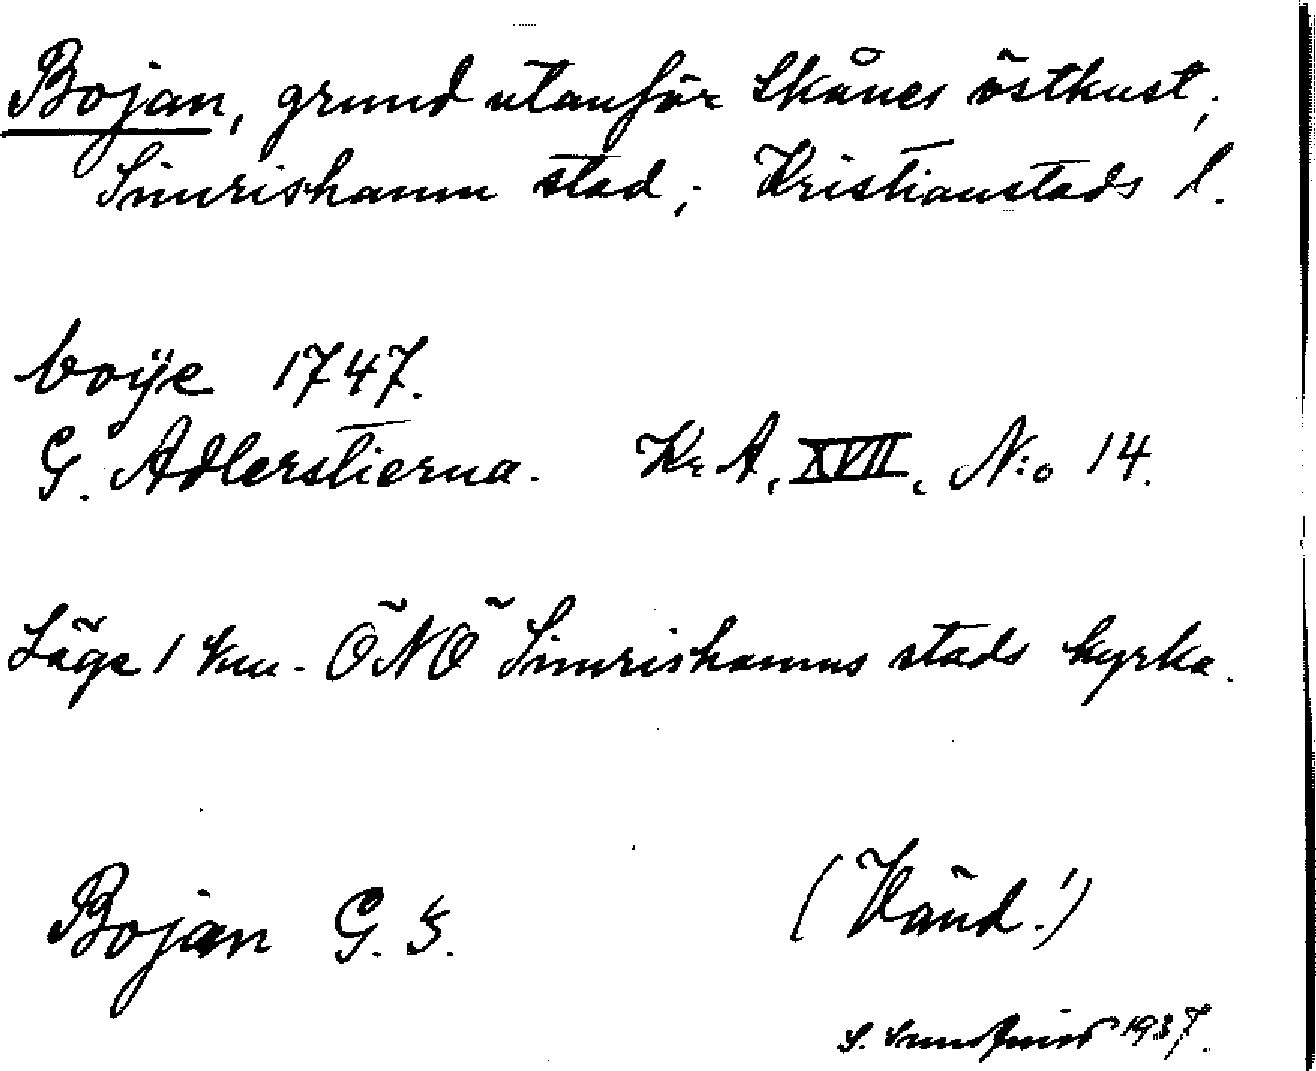 Bojan, grund utanför Skånes östkust,
Simrishamn stad; Kristianstads l.
boÿe 1747.
G. Adlerstierna. Kr A, XVII, N:o 14.
Läge 1 km. ÖNÖ Simrishamns stads kyrka.
Bojan G. S. (Vänd!)
S. 1937.